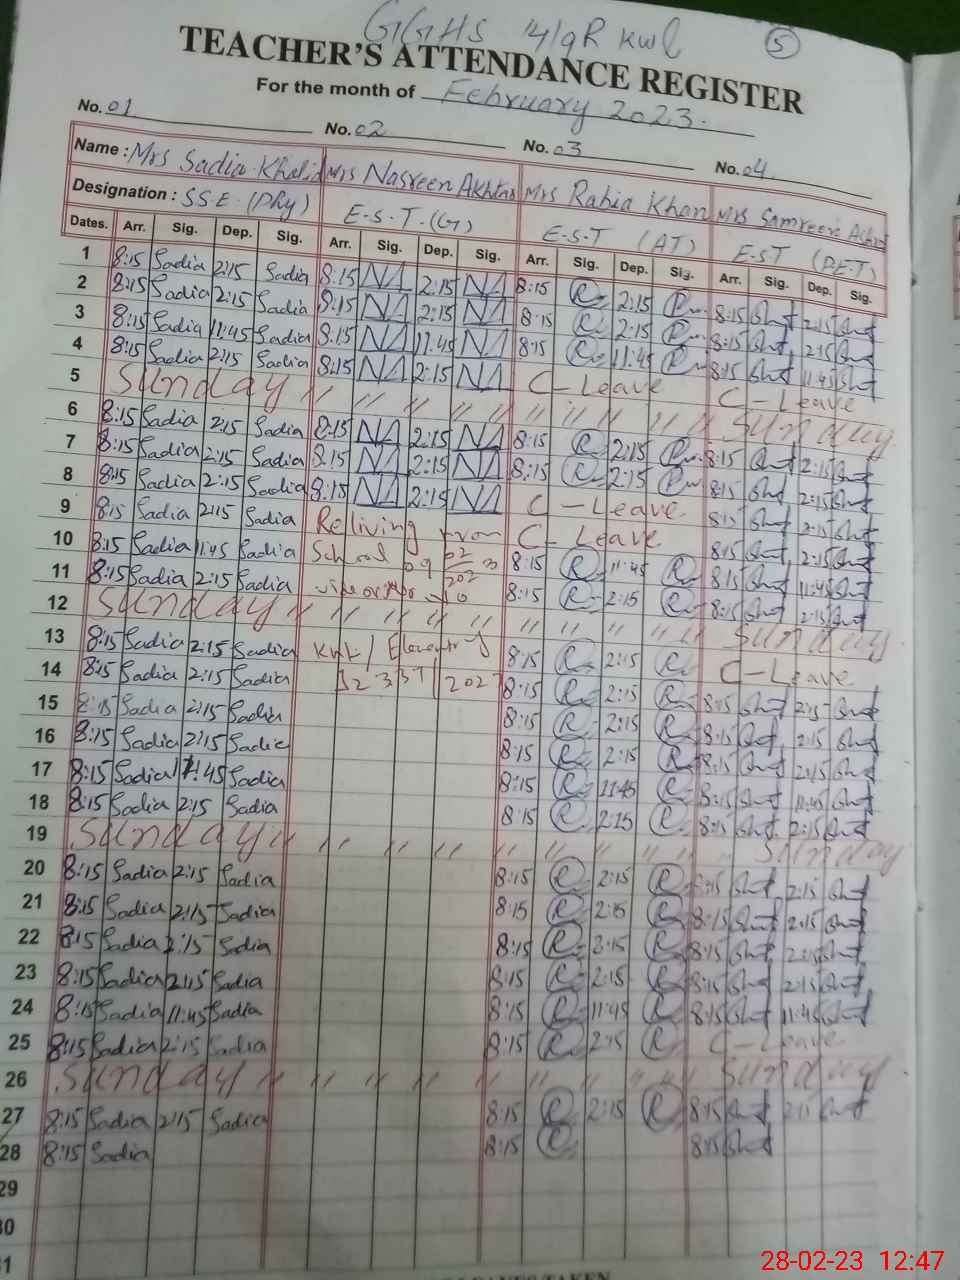 GGHS 4/9R kwl 5
TEACHER'S ATTENDANCE REGISTER
For the month of February 2023.
No. 01 No. 02 No. 03 No. 04
Name : Mrs Sadia Khalid Mrs Nasreen Akhtar Mrs Rabia Khan Mrs Samreen
Designation : SSE (Phy) E.S.T.(G) E.S.T (AT) E.S.T
Dates. Arr. Sig. Dep. Sig. Arr. Sig. Dep. Sig. Arr. Sig. Dep. Sig. Arr. Sig. Dep. Sig.
1 8:15 Sadia 2:15 Sadia 8:15 NA 2:15 NA 8:15 R 2:15 R 8:15 2:15
2 8:15 Sadia 2:15 Sadia 8:15 NA 2:15 NA 8:15 R 2:15 R 8:15 2:15
3 8:15 Sadia 11:45 Sadia 8:15 NA 11:45 NA 8:15 R 11:45 R 8:15 11:45
4 8:15 Sadia 2:15 Sadia 8:15 NA 2:15 NA C-Leave C-Leave
5 Sunday " " " " " " " " " Sunday
6 8:15 Sadia 2:15 Sadia 8:15 NA 2:15 NA 8:15 R 2:15 R 8:15 2:15
7 8:15 Sadia 2:15 Sadia 8:15 NA 2:15 NA 8:15 R 2:15 R 8:15 2:15
8 8:15 Sadia 2:15 Sadia 8:15 NA 2:15 NA C-Leave 8:15 2:15
9 8:15 Sadia 2:15 Sadia Reliving from C-Leave 8:15 2:15
10 8:15 Sadia 11:45 Sadia School 09 02 8:15 R 11:45 R 8:15 11:45
11 8:15 Sadia 2:15 Sadia 8:15 R 2:15 R 8:15 2:15
12 Sunday " " " " " " " " " Sunday
13 8:15 Sadia 2:15 Sadia 8:15 R 2:15 R C-Leave
14 8:15 Sadia 2:15 Sadia 8:15 R 2:15 R 8:15 2:15
15 8:15 Sadia 2:15 Sadia 8:15 R 2:15 R 8:15 2:15
16 8:15 Sadia 2:15 Sadia 8:15 R 2:15 R 8:15 2:15
17 8:15 Sadia 11:45 Sadia 8:15 R 11:45 R 8:15 11:45
18 8:15 Sadia 2:15 Sadia 8:15 R 2:15 R 8:15 2:15
19 Sunday " " " " " " " " " Sunday
20 8:15 Sadia 2:15 Sadia 8:15 R 2:15 R 8:15 2:15
21 8:15 Sadia 2:15 Sadia 8:15 R 2:15 R 8:15 2:15
22 8:15 Sadia 2:15 Sadia 8:15 R 2:15 R 8:15 2:15
23 8:15 Sadia 2:15 Sadia 8:15 R 2:15 R 8:15 2:15
24 8:15 Sadia 11:45 Sadia 8:15 R 11:45 R 8:15 11:45
25 8:15 Sadia 2:15 Sadia 8:15 R 2:15 R C-Leave
26 Sunday " " " " " " " " " Sunday
27 8:15 Sadia 2:15 Sadia 8:15 R 2:15 R 8:15 2:15
28 8:15 Sadia 8:15 R 8:15
29
30
31
28-02-23 12:47